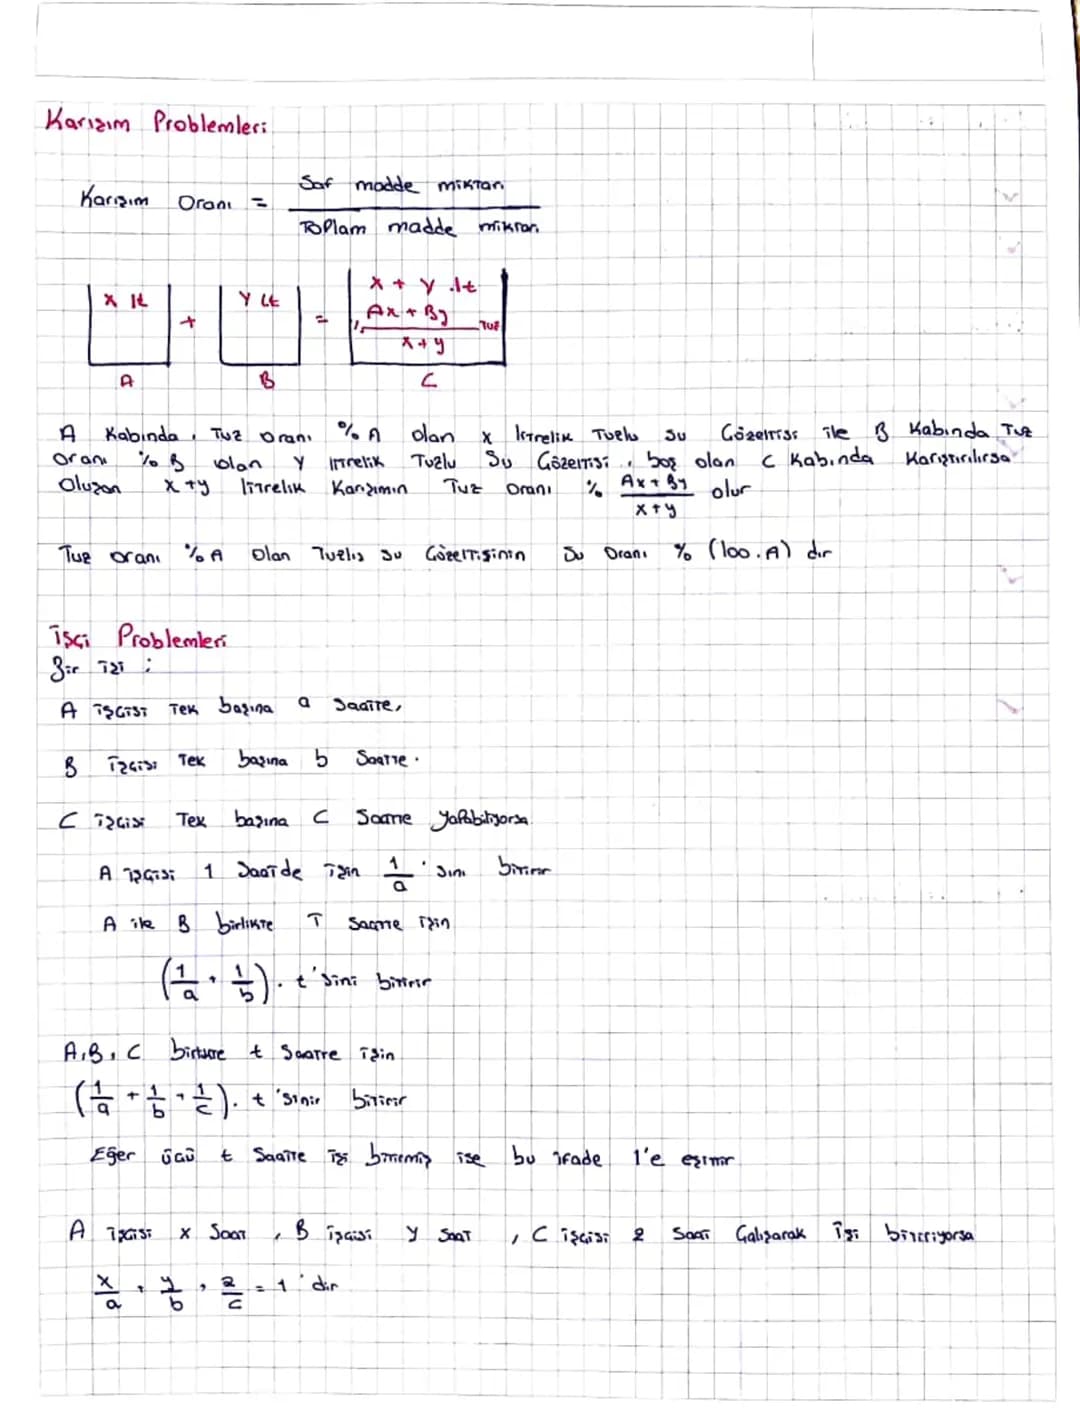 Karışım Problemleri
Karışım Oranı = Saf madde miktarı / Toplam madde miktarı
x lt + y lt = x + y lt
% (Ax + By)/(x+y) Tuz
A B C
A Kabında, Tuz oranı % A olan x litrelik Tuzlu su Çözeltisi ile B Kabında Tuz
oranı % B olan y litrelik Tuzlu Su Çözeltisi, boş olan C Kabında Karıştırılırsa
Oluşan x+y litrelik Karışımın Tuz oranı % (Ax+By)/(x+y) olur
Tuz oranı % A Olan Tuzlu su Çözeltisinin Su Oranı % (100.A) dır
İşçi Problemleri
Bir işi :
A işçisi Tek başına a Saatte,
B işçisi Tek başına b Saatte.
C işçisi Tek başına C Saatte yapabiliyorsa
A işçisi 1 Saatde işin 1/a 'sını bitirir
A ile B birlikte T saatte işin
(1/a + 1/b). t'sini bitirir
A, B, C birlikte t Saatte işin
(1/a + 1/b + 1/c). t 'sinir bitirir
Eğer üçü t Saatte işi bitirmiş ise bu ifade 1'e eşittir
A işçisi x Saat, B işçisi y Saat, C işçisi z Saat Çalışarak işi bitiriyorsa
x/a + y/b + z/c = 1' dir